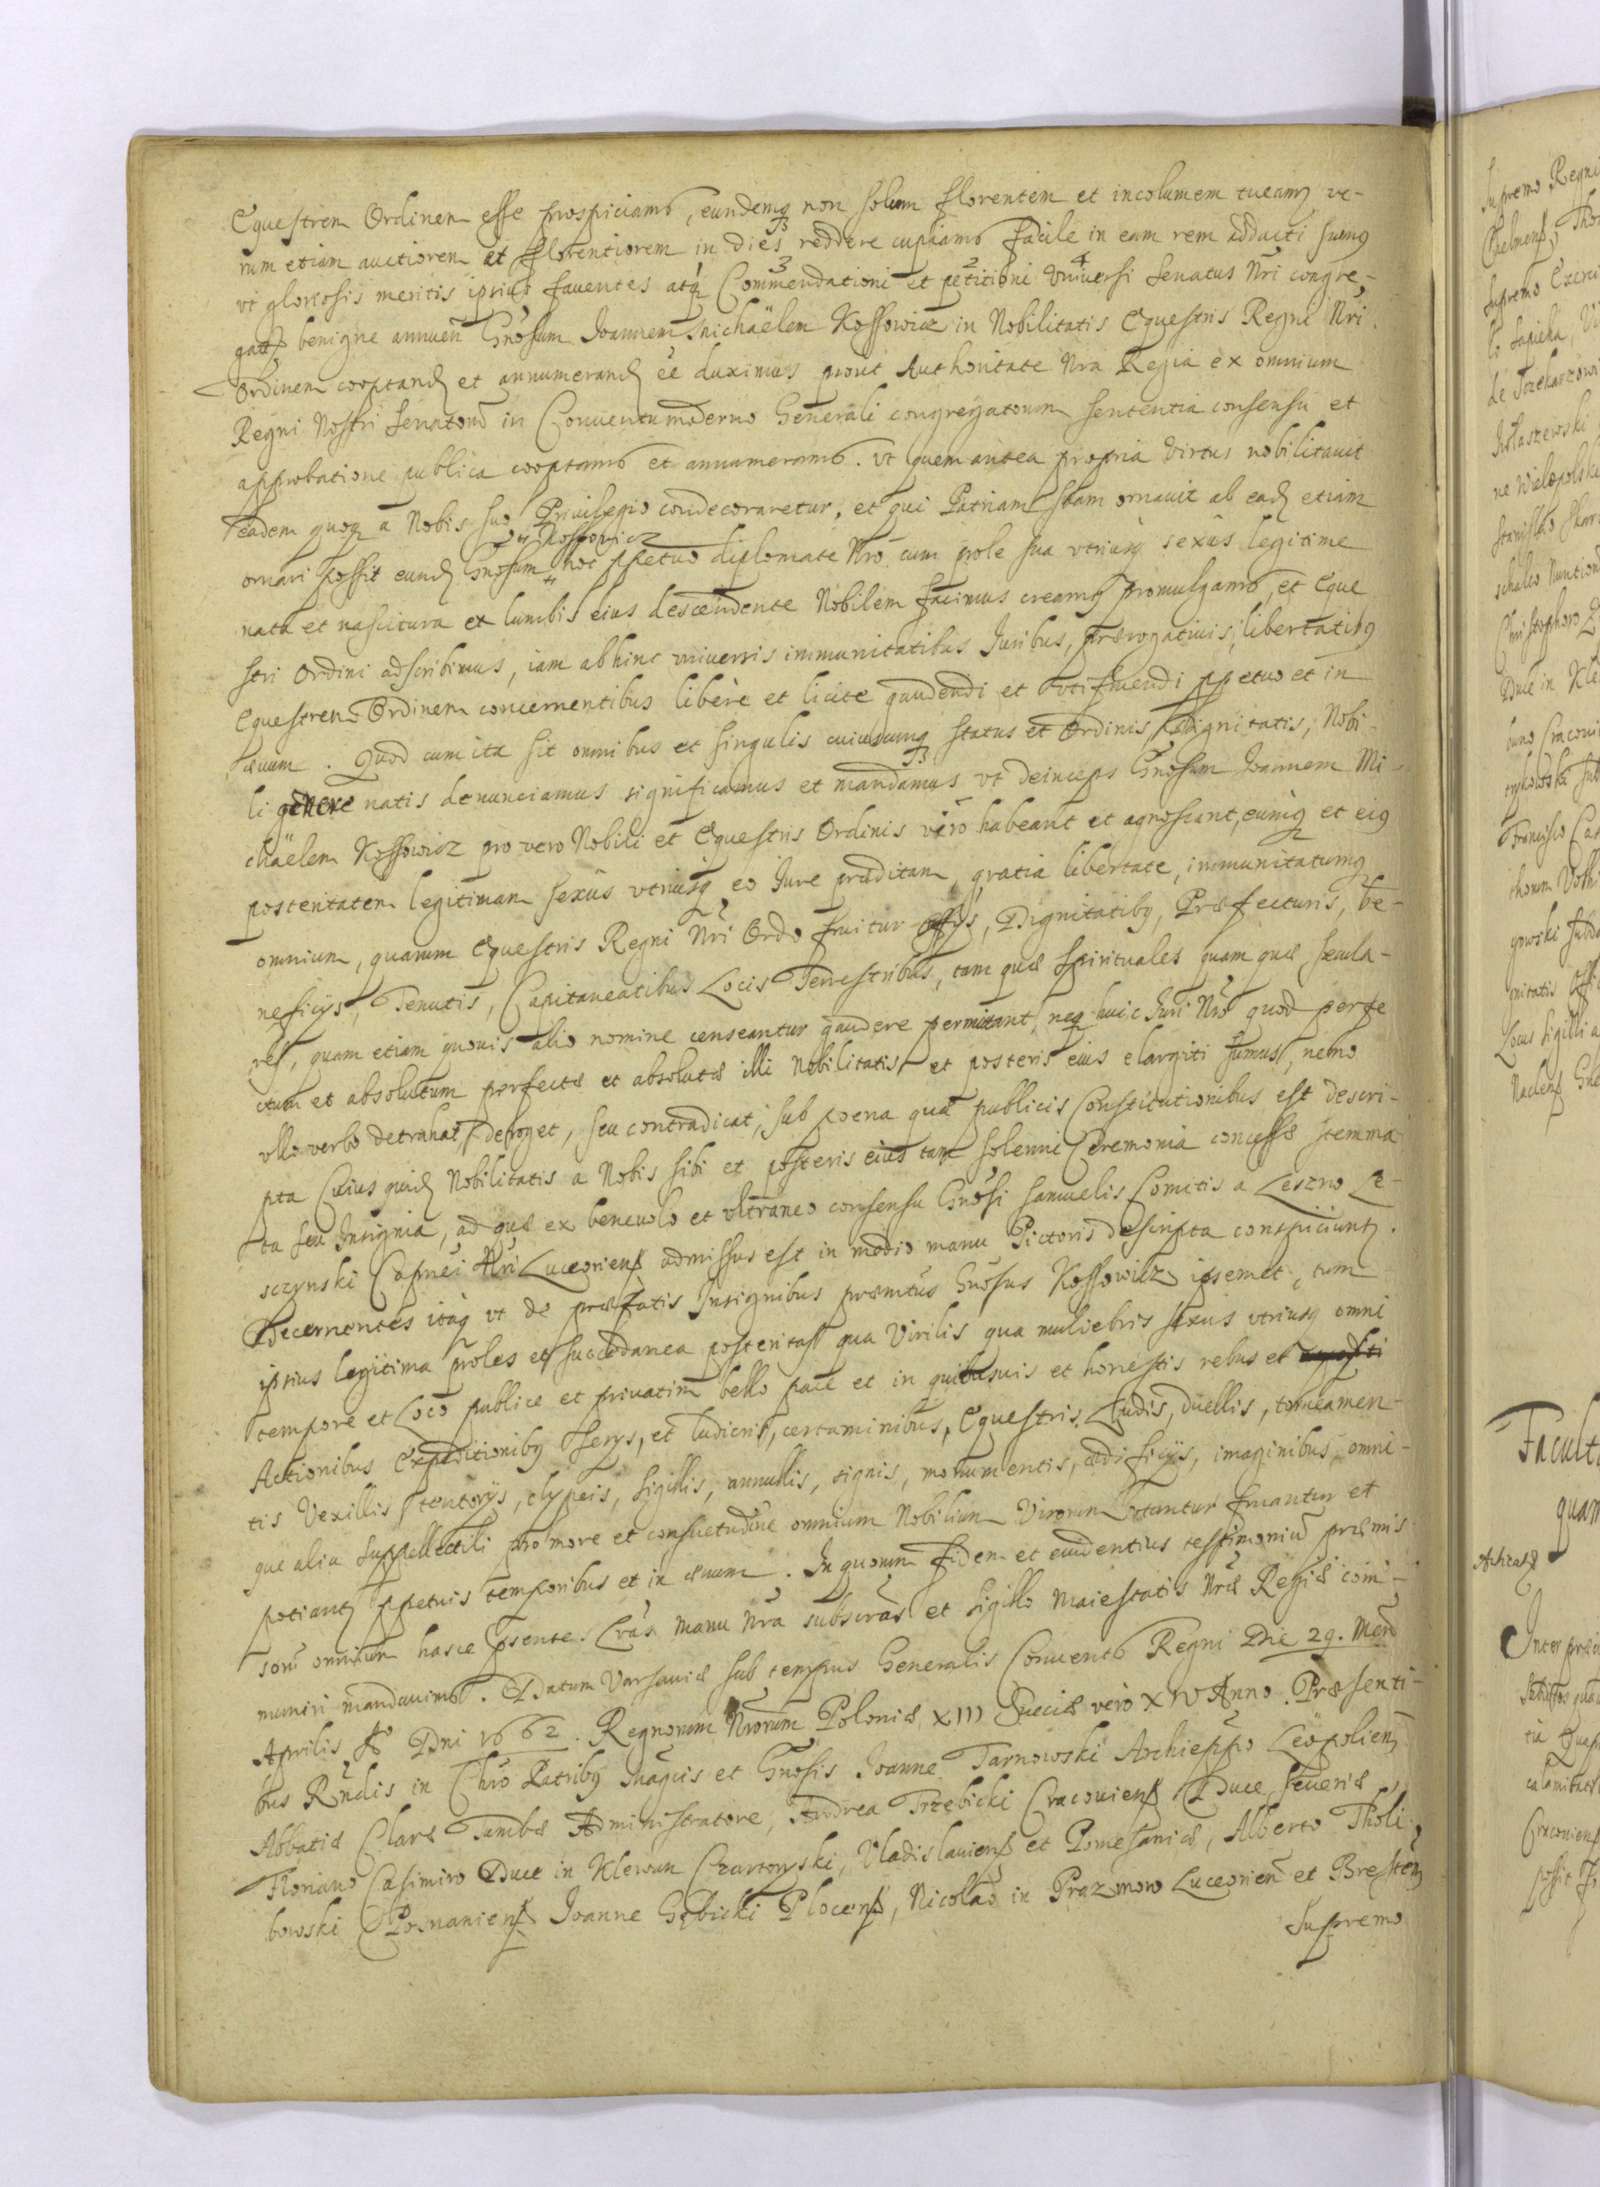 Equestrem Ordinem esse prospiciamus, eundemq non solum florentem et incolumem tueamur ve-
rum etiam auctiorem et florentiorem in dies reddere cupiamus facile in eam rem adducti sumus
vt gloriosis meritis ipsius fauentes atq Commendationi et petitioni vniuersi Senatus Nri congre-
gati benigne annuen Gnosum Joannem Michaëlem Kossowicz in Nobilitatis Equestris Regni Nri
Ordinem cooptand et annumerand eē duximus prout Authoritate Nra Regia ex omnium
Regni Nostri Senatorū in Conuentu moderno Generali congregatorum sententia consensu et
approbatione publica cooptamus et annumeramus. Vt quem antea propria virtus nobilitauit
eadem quoq a Nobis suo Priuilegio condecoraretur, et qui Patriam suam ornauit ab ead etiam
Kossowicz
ornari possit eund Gnosum hoc ppetuo diplomate Nro cum prole sua vtriusq sexus legitime
nata et nascitura ex lumbis eius descendente Nobilem facimus creamus promulgamus, et Eque
stri Ordini adscribimus, iam abhinc vniuersis immunitatibus Iuribus, prærogatiuis, libertatibus
Equestrem Ordinem concernentibus liberè et licite gaudendi et vtifruendi ppetuo et in
æuum. Quod cum ita sit omnibus et singulis cuiuscunq status et Ordinis, Dignitatis, Nobi-
li genere natis denunciamus significamus et mandamus vt deinceps Gnosum Joannem Mi-
chäelem Kossowicz pro vero Nobili et Equestris Ordinis viro habeant et agnoscant, eumq et eius
posteritatem legitimam sexus vtriusq eo Iure præditam, gratia libertate, immunitatumq
omnium, quarum Equestris Regni Nri Ordo fruitur Offys, Dignitatibus, Præfecturis, be-
neficiys, Tenutis, Capitaneatibus Locis Terrestribus, tam quæ spirituales quam quæ secula-
res, quam etiam quouis alio nomine censeantur gaudere permittant, neq huic Iuri Nro quod perfe
ctum et absolutum perfectæ et absolutæ illi Nobilitatis et posteris eius elargiti sumus, nemo
vllo verbo detrahat, deroget, seu contradicat, sub poena quæ publicis Constitutionibus est descri-
pta Cuius quid Nobilitatis a Nobis sibi et posteris eius tam solenni Ceremonia concessæ stemma
ta seu Insignia, ad quæ ex beneuolo et vltraneo consensu Gnosi Samuelis Comitis a Leszno Le-
szczynski Capnei Nri Luceoriens admissus est in medio manu Pictoris descripta conspiciunt.
Decernentes itaq vt de præfatis Insignibus præmitus Gnosus Kossowicz ipsemet, tum
ipsius legitima proles et succedanea posteritas qua Virilis qua muliebris sexus vtriusq omni
tempore et Loco publice et priuatim bello pace et in quibusuis et honestis rebus et
Actionibus Expeditionibus seriys, et ludicris, certaminibus, Equestris. Ludis, duellis, torneamen-
tis Vexillis, tentoriys, clypeis, sigillis, annulis, signis, monumentis, ædificiys, imaginibus, omni-
que alia suppellectili pro more et consuetudine omnium Nobilium Virorum vtantur fruantur et
potiant ppetuis temporibus et in æuum. In quorum fidem et euidentius testimoniū præmis-
sorū omnium hasce psentes Lras Manu Nra subscras et sigillo Maiestatis Nræ Regiæ com-
muniri mandauimus. Datum Varsauiæ sub tempus Generalis Conuentus Regni Die 29. Men
Aprilis Ao Dni 1662. Regnorum Nrorum Poloniæ XIII Sueciæ vero XIV Anno. Præsenti-
bus Rndis in Chro Patribus Magcis et Gnosis Joanne Tarnowski Archieppo Leopolien
Abbatiæ Claræ Tumbæ Administratore, Andrea Trzebicki Cracouiens Duce Seueriæ,
Floriano Casimiro Duce in Klewan Czartoryski, Vladislauiens et Pomesaniæ, Alberto Tholi-
bowski Posnaniens Joanne Gębicki Plocens, Nicolao in Prazmow Luceorien et Bresten
Supremo
Supremo Regni
Supremo
Stanislao
Christophoro
Duce in
Francisco
Locus sigilli
Facult
quam
Inter